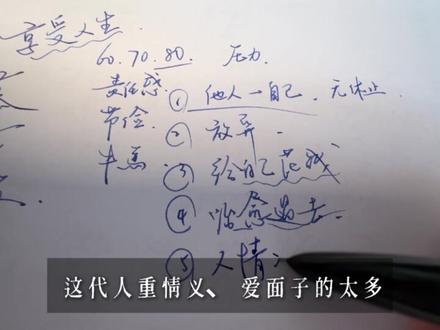 享受人生
60.70.80 压力
责任感
节俭
焦
① 他人一自己.无休止.
② 放弃.
③ 给自己花钱
④ 治愈过去.
⑤ 人情
这代人重情义、爱面子的太多